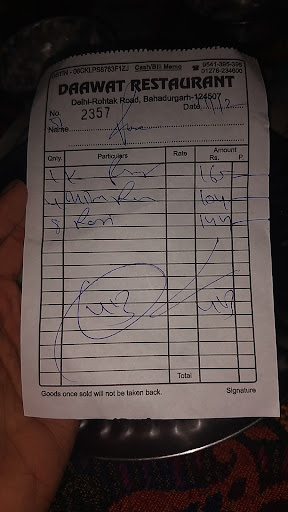 GSTIN - 06CKLPS8763F1ZJ Cash/Bill Memo 9541-395-395
01276-234600
DAAWAT RESTAURANT
Delhi-Rohtak Road, Bahadurgarh-124507
No. 2357 Date
Name
Qnty. Particulars Rate Amount
Rs. P.
1 165
4 104
8 Roti 144
413 413
Total
Goods once sold will not be taken back. Signature